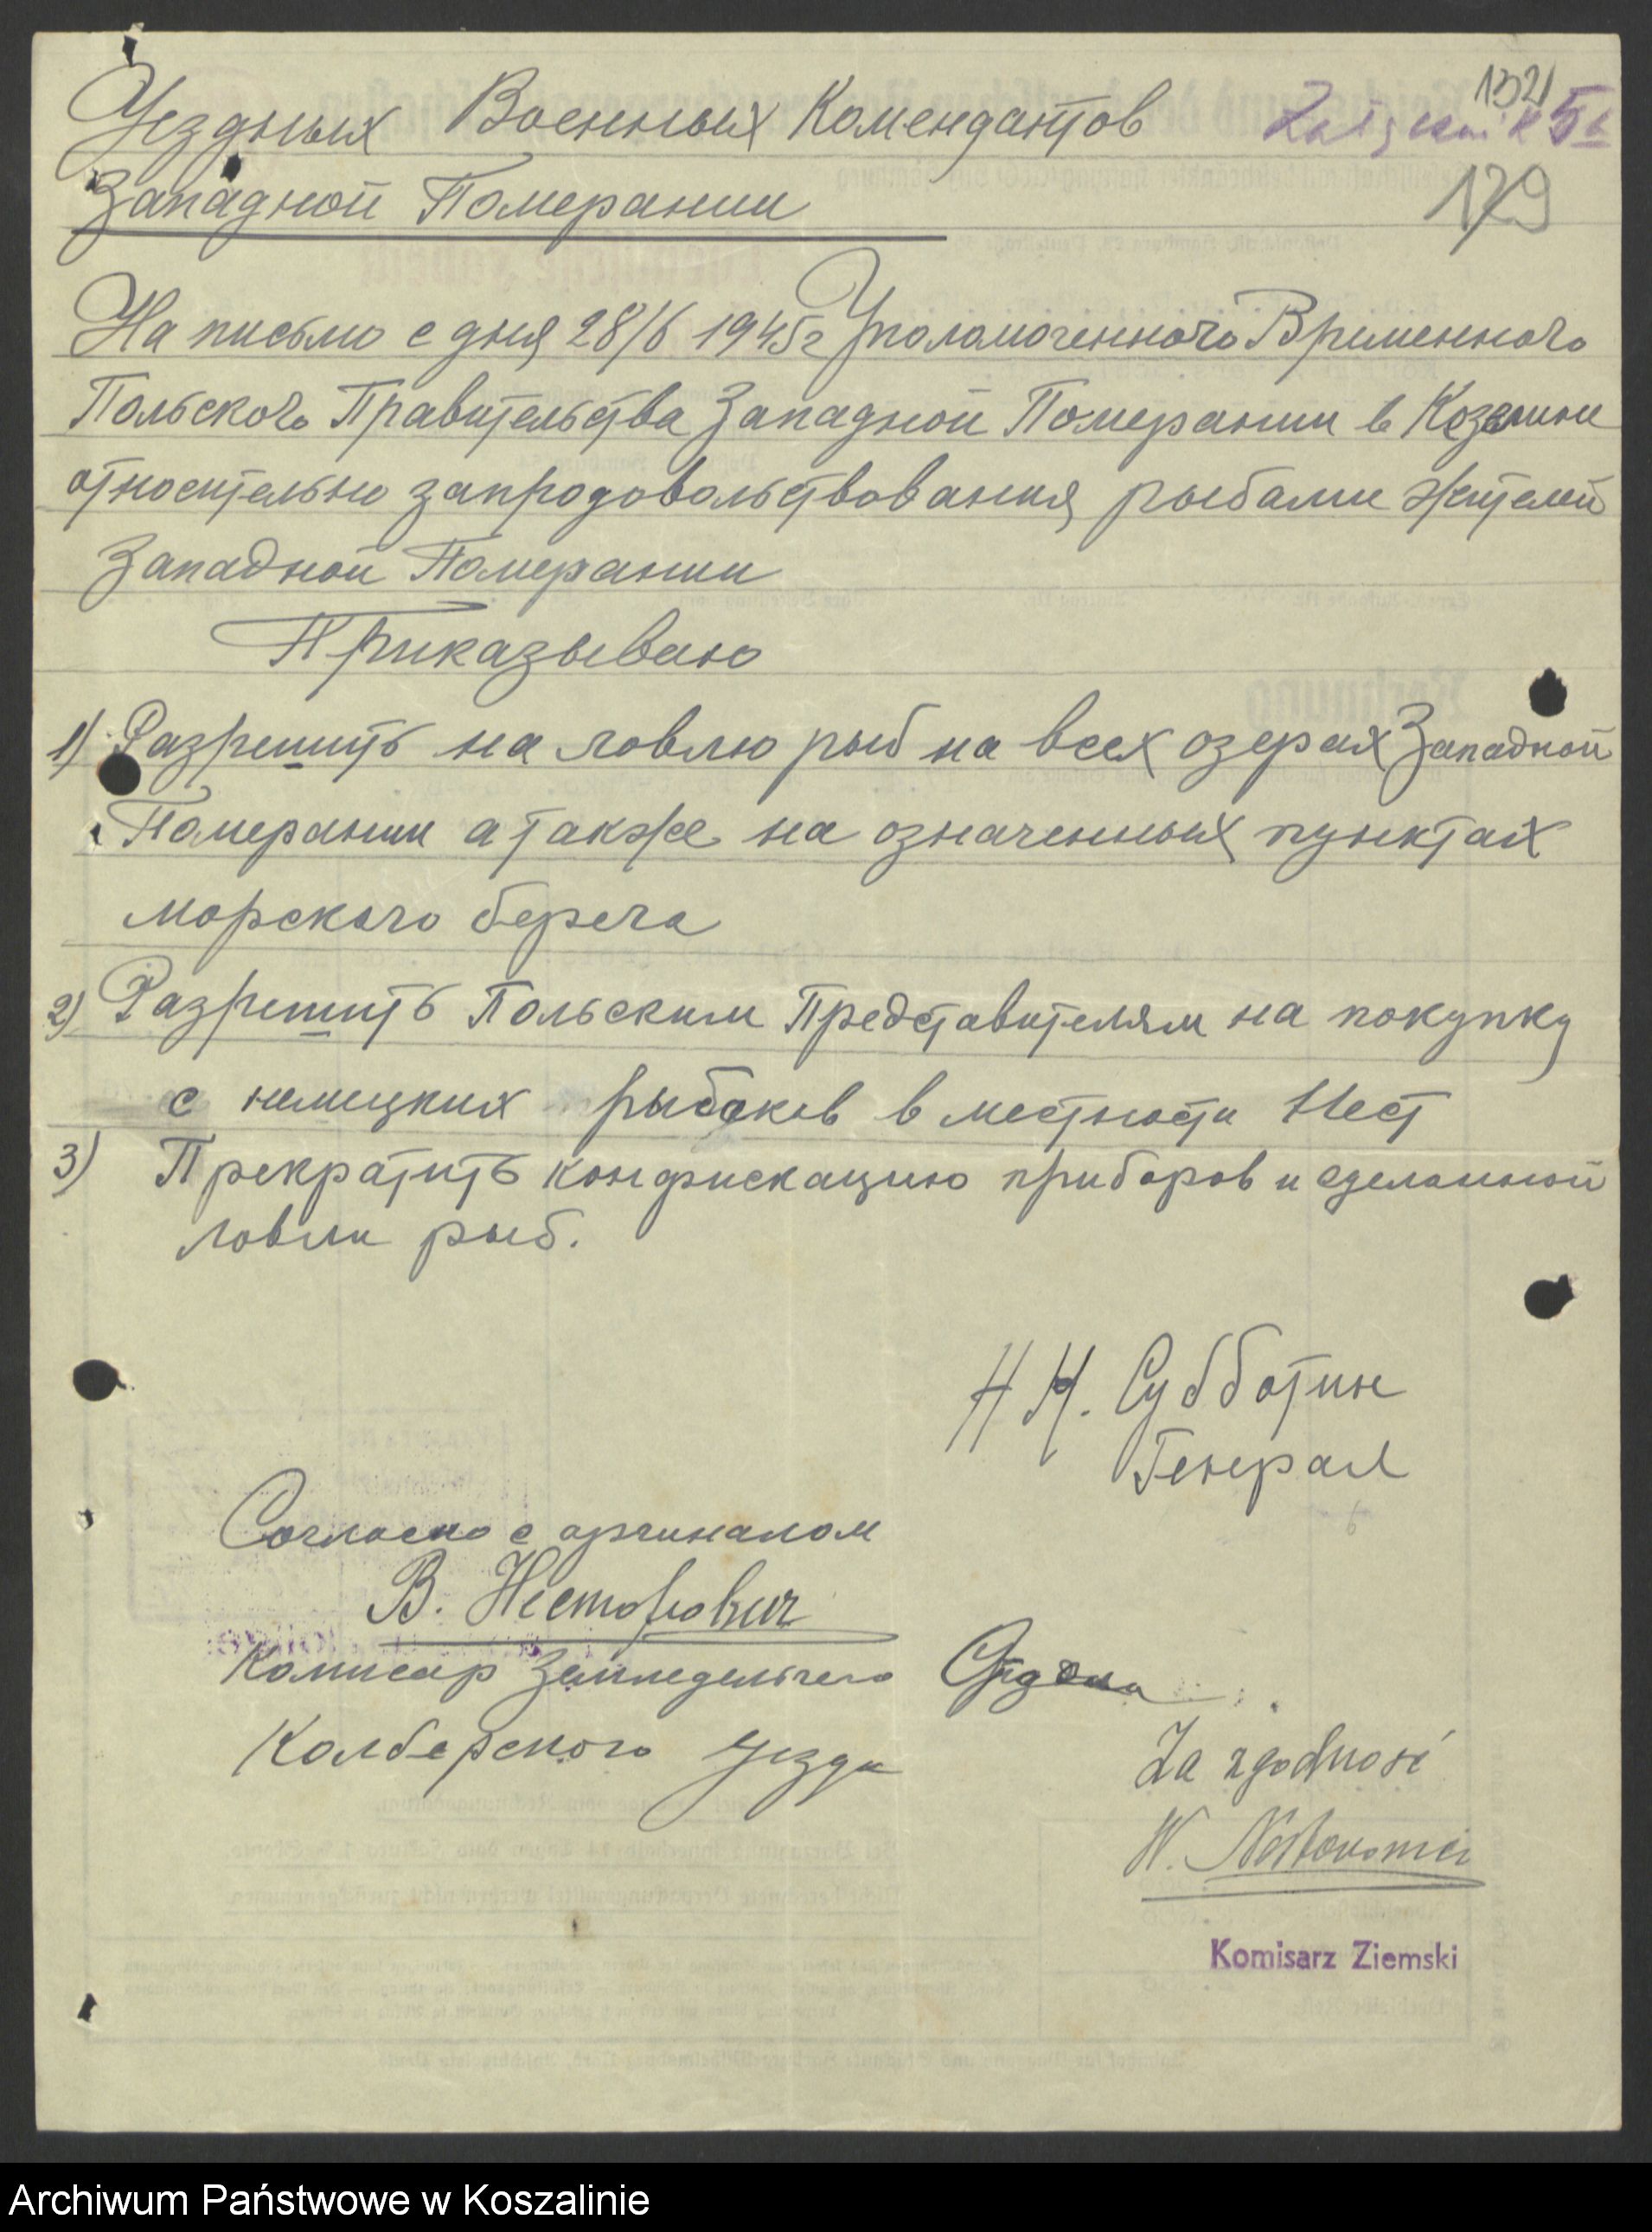 1321
Załącznik 5a
Уездных Военных Комендантов
129
Западной Померании
На письмо с дня 28/6 1945г Уполомоченного Временного
Польского Правительства Западной Померании в Козлине
относительно запродовольствования рыбами жителей
Западной Померании
Приказываю
1) Разрешить на ловлю рыб на всех озерах Западной
Померании а также на означенных пунктах
морского берега
2) Разрешить Польским Представителям на покупку
с немецких рыбаков в местности Нест
3) Прекратить конфискацию приборов и сделанной
ловли рыб.
Н Н. Субботин
Генерал
Согласно с оргиналом
В. Несторович
Комисар Земледельчего Отдела
Колберского Уезда
Za zgodność
W.
Komisarz Ziemski
Archiwum Państwowe w Koszalinie